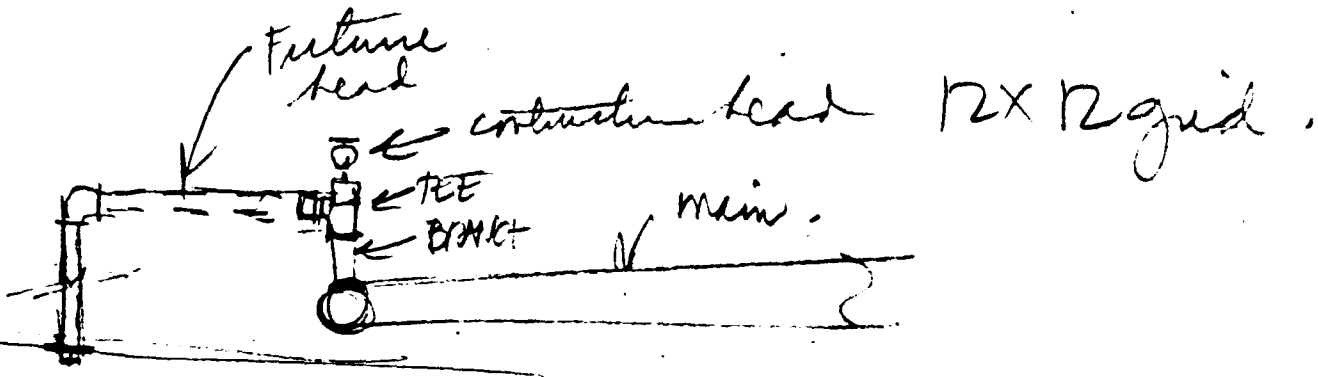 Future
head
construction head 12 X 12 grid.
TEE
main.
BRANCH